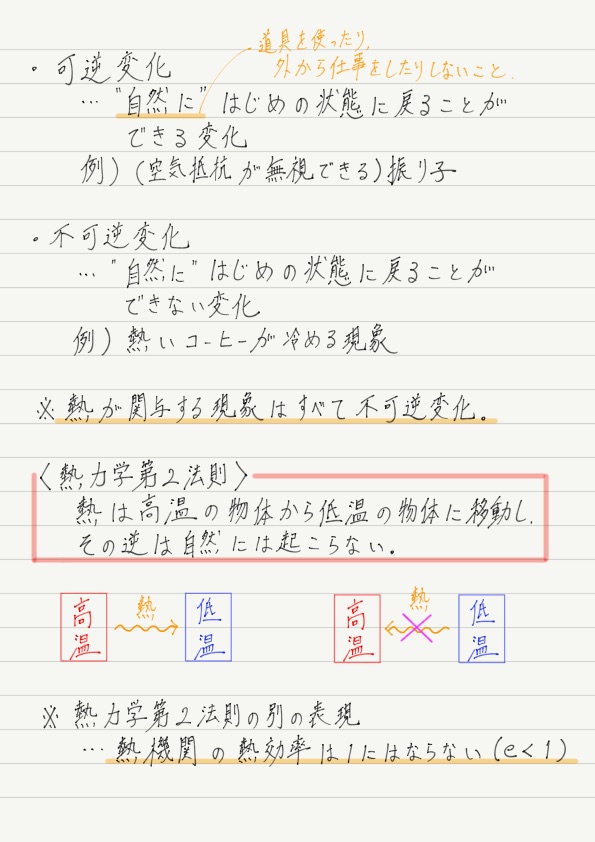 道具を使ったり,
外から仕事をしたりしないこと.
・可逆変化
… "自然に" はじめの状態に戻ることが
できる変化
例) (空気抵抗が無視できる)振り子
・不可逆変化
… "自然に" はじめの状態に戻ることが
できない変化
例) 熱いコーヒーが冷める現象
※ 熱が関与する現象はすべて不可逆変化。
〈熱力学第2法則〉
熱は高温の物体から低温の物体に移動し,
その逆は自然には起こらない.
高温 熱 低温 高温 熱 低温
※ 熱力学第2法則の別の表現
… 熱機関の熱効率は1にはならない (e<1)